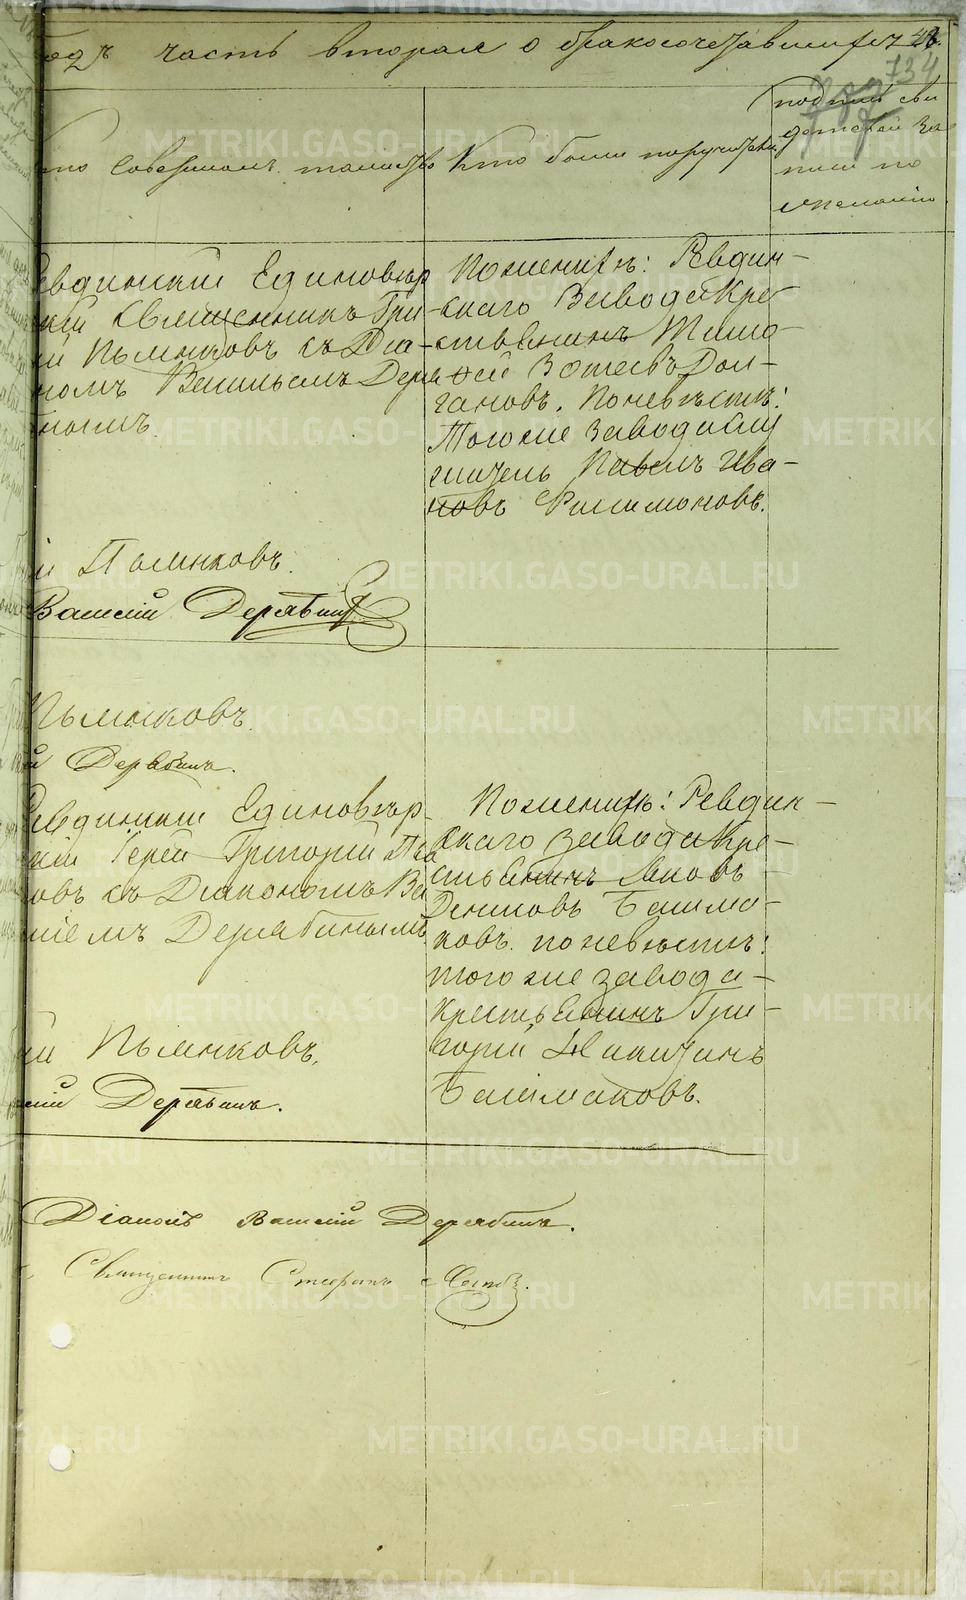 годъ часть вторая о бракосочетавшихся
734
Кто совершалъ таинство
Кто были поручители
подпись сви
детелей за
писи по
желанію
Ревдинскій Единовѣр
скій Священникъ Гри
рій Пьянковъ съ Діа-
кономъ Васильемъ Деря
бинымъ.
По женихѣ: Ревдин-
скаго Завода Кре
стьянинъ Тимо-
ѳей Зотеевъ Дол-
гановъ. По невѣстѣ:
Того же завода слу
житель Павелъ Ива-
новъ Филимоновъ.
й Пьянковъ.
Василій Дерябинъ
Пьянковъ.
й Дерябинъ.
Ревдинскій Единовѣр-
скій Іерей Григорій Пья
ковъ съ Діакономъ Ва
сіемъ Дерябинымъ
По женихѣ: Ревдин-
скаго завода Кре-
стьянинъ Яковъ
Денисовъ Башма-
ковъ. по невѣстѣ:
того же завода-
Крестьянинъ Гри-
горій Никитинъ
Башмаковъ.
й Пьянковъ.
силій Дерябинъ.
Діаконъ Василій Дерябинъ.
Священникъ Стефанъ
METRIKI.GASO-URAL.RU